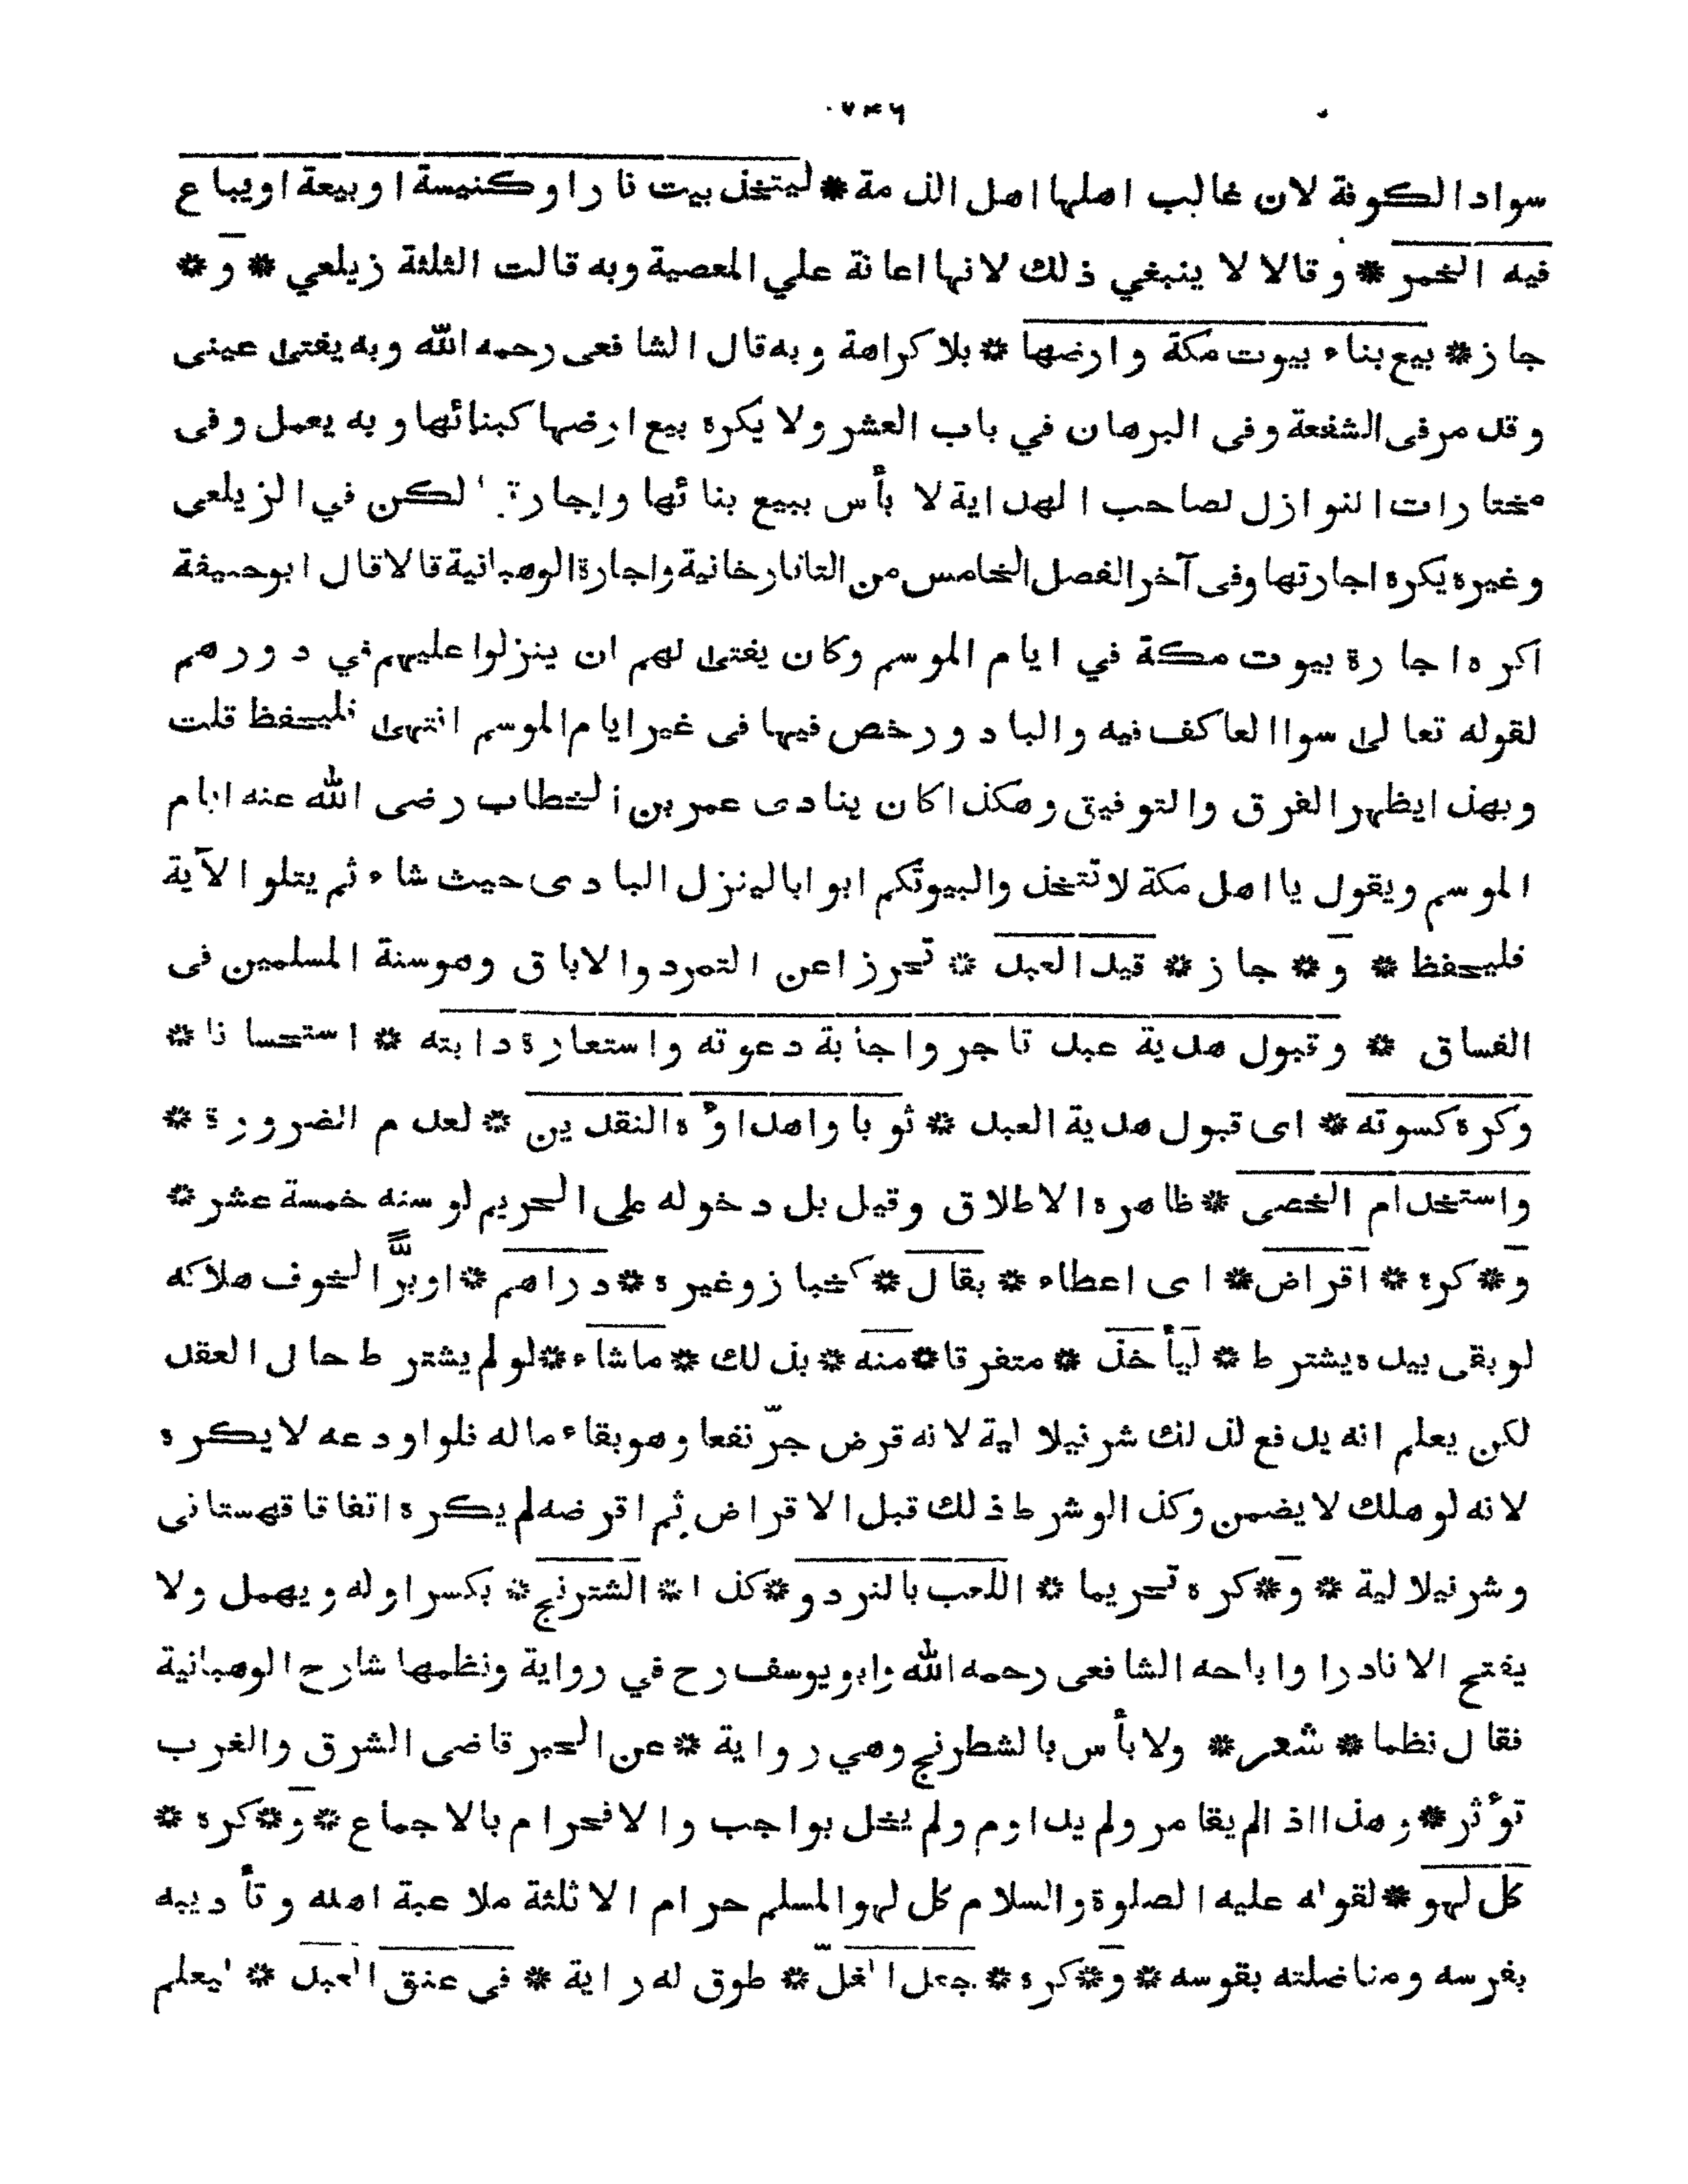 ٧٣٦
سواد الكوفة لان غالب اهلها اهل الذمة * ليتخذ بيت نارا وكنيسة او بيعة او يباع
فيه الخمر * وقالا لا ينبغي ذلك لانها اعانة علي المعصية وبه قالت الثلثة زيلعي * و *
جاز * بيع بناء بيوت مكة وارضها * بلا كراهة وبه قال الشافعى رحمه الله وبه يفتى عينى
وقد مر فى الشفعة وفى البرهان في باب العشر ولا يكره بيع ارضها كبنائها وبه يعمل وفى
مختارات النوازل لصاحب الهداية لا بأس ببيع بنائها واجارة لكن في الزيلعى
وغيره يكره اجارتها وفى آخر الفصل الخامس من التاتارخانية واجارة الوهبانية قالا قال ابوحنيفة
اكره اجارة بيوت مكة في ايام الموسم وكان يفتى لهم ان ينزلوا عليهم في دورهم
لقوله تعالى سوا العاكف فيه والباد ورخص فيها فى غير ايام الموسم انتهى فليحفظ قلت
وبهذا يظهر الفرق والتوفيق وهكذا كان ينادى عمر بن الخطاب رضى الله عنه ايام
الموسم ويقول يا اهل مكة لا تتخذوا لبيوتكم ابوابا لينزل البادى حيث شاء ثم يتلوا الآية
فليحفظ * و * جاز * قيد العبد * تحرزا عن التمرد والاباق وهو سنة المسلمين فى
الفساق * وقبول هدية عبد تاجر واجابة دعوته واستعارة دابته * استحسانا *
وكره كسوته * اى قبول هدية العبد * ثوبا واهداؤه النقدين * لعدم الضرورة *
واستخدام الخصى * ظاهره الاطلاق وقيل بل دخوله على الحريم لو سنه خمسة عشر *
و * كره * اقراض * اى اعطاء * بقال * كخباز وغيره * دراهم * او برًّا لخوف هلاكه
لو بقى بيده يشترط * ليأخذ * متفرقا * منه * بذلك * ماشاء * لو لم يشترط حال العقد
لكن يعلم انه يدفع لذلك شرنبلالية لانه قرض جرّ نفعا وهو بقاء ماله فلو اودعه لا يكره
لانه لو هلك لا يضمن وكذا لو شرط ذلك قبل الاقراض ثم اقرضه لم يكره اتفاقا قهستانى
وشرنبلالية * و * كره تحريما * اللعب بالنرد و * كذا * الشترنج * بكسر اوله ويهمل ولا
يفتح الا نادرا واباحه الشافعى رحمه الله وابو يوسف رح في رواية ونظمها شارح الوهبانية
فقال نظما * شعر * ولا بأس بالشطرنج وهي رواية * عن الحبر قاضى الشرق والغرب
تؤثر * وهذا اذا لم يقامر ولم يداوم ولم يخل بواجب والا فحرام بالاجماع * و * كره *
كل لهو * لقوله عليه الصلوة والسلام كل لهو المسلم حرام الا ثلثة ملاعبة اهله وتأديبه
بفرسه ومناضلته بقوسه * و * كره * جعل الغلّ * طوق له راية * فى عنق العبد * ليعلم